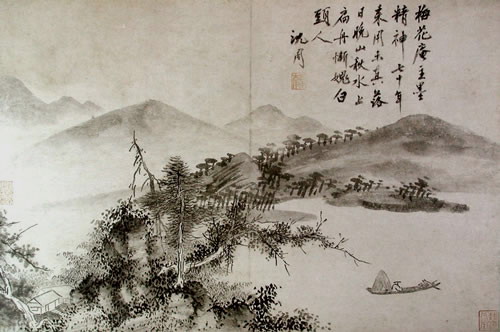 梅花庵主墨
精神七十年
來用未真落
日晚山秋水上
扁舟慚媿白
頭人
沈周